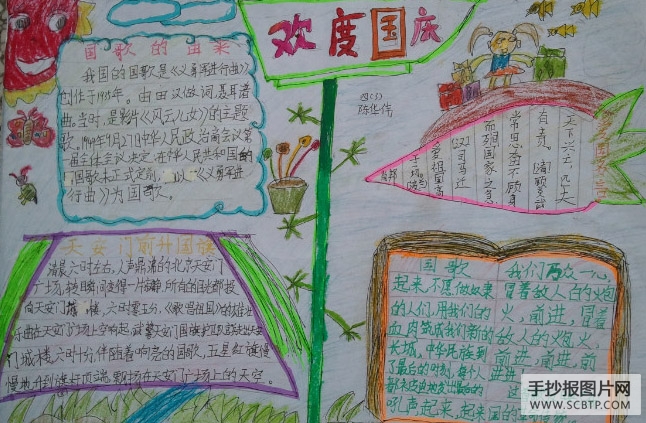 欢度国庆
国歌的由来
我国的国歌是《义勇军进行曲》
创作于1935年。由田汉做词,聂耳谱
曲。当时,是影片《风云儿女》的主题
歌。1949年9月27日中华人民政治商会议第
一届全体会议决定,在中华人民共和国的
国歌未正式定制,以《义勇军进
行曲》为国歌。
四(5)
陈华伟
天下兴亡,匹夫
有责。
常思奋不顾身
而殉国家之急
司马迁
天安门前升国旗
清晨六时左右,人声鼎沸的北京天安门
广场,转瞬间变得一片静
向天安门城楼,六时零五分,《歌唱祖国》的雄壮
乐曲在天安门广场上空响起,武警天安门国旗护卫队
门城楼,六时十分伴随着响亮的国歌,五星红旗慢
慢地升到旗杆顶端,飘扬在天安门广场上的天空。
国歌
起来,不愿做奴隶
的人们,用我们的
血肉筑成我们新的
长城,中华民族到
了最后的时刻,每个人
吼声起来,起来
我们万众一心
冒着敌人的炮
火,前进,冒着
敌人的炮火,
前进,前进,前
进
手抄报图片网
WWW.SCBTP.COM